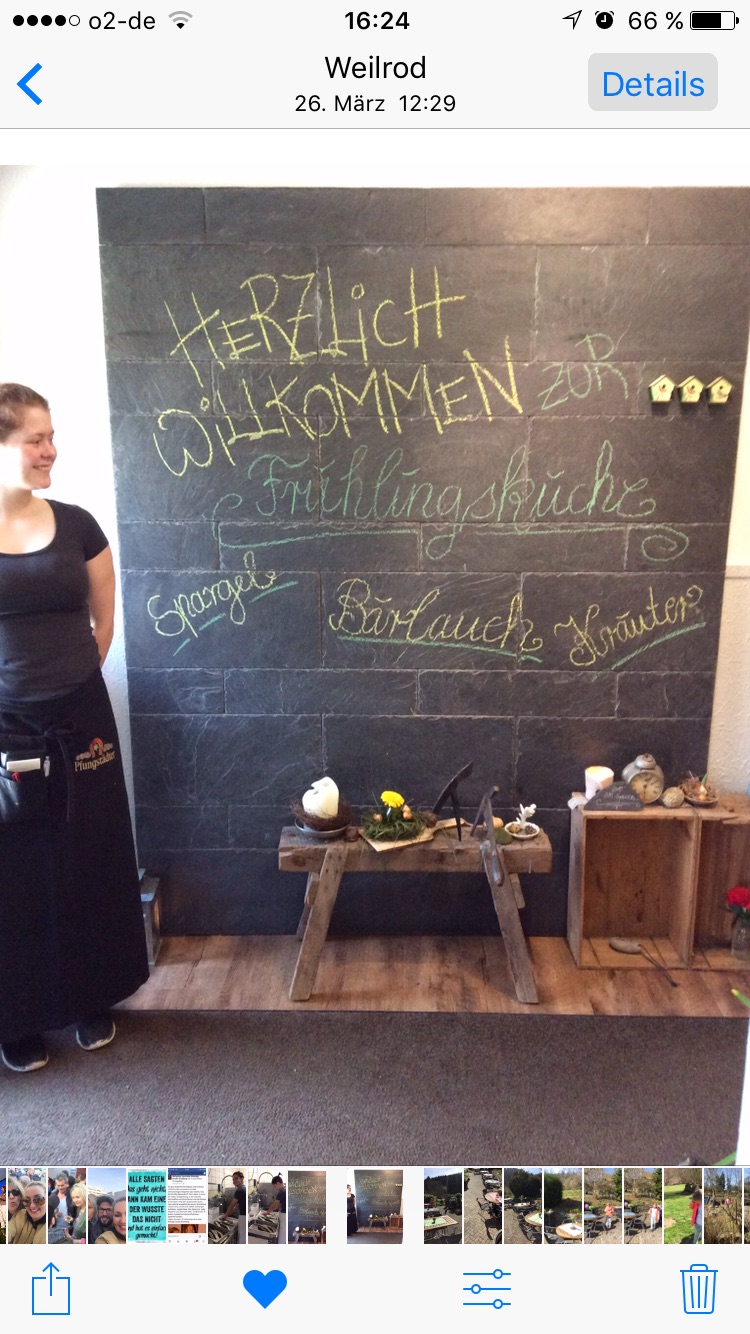 o2-de 16:24 66 %
Weilrod
26. März 12:29
Details
HERZLiCH
WiLLKOMMEN ZUR
Frühlingsküche
Spargel Bärlauch Kräuter
Pfungstädter
ALLE SAGTEN
das geht nicht.
DANN KAM EINER
DER WUSSTE
DAS NICHT
und hat es einfach
gemacht!